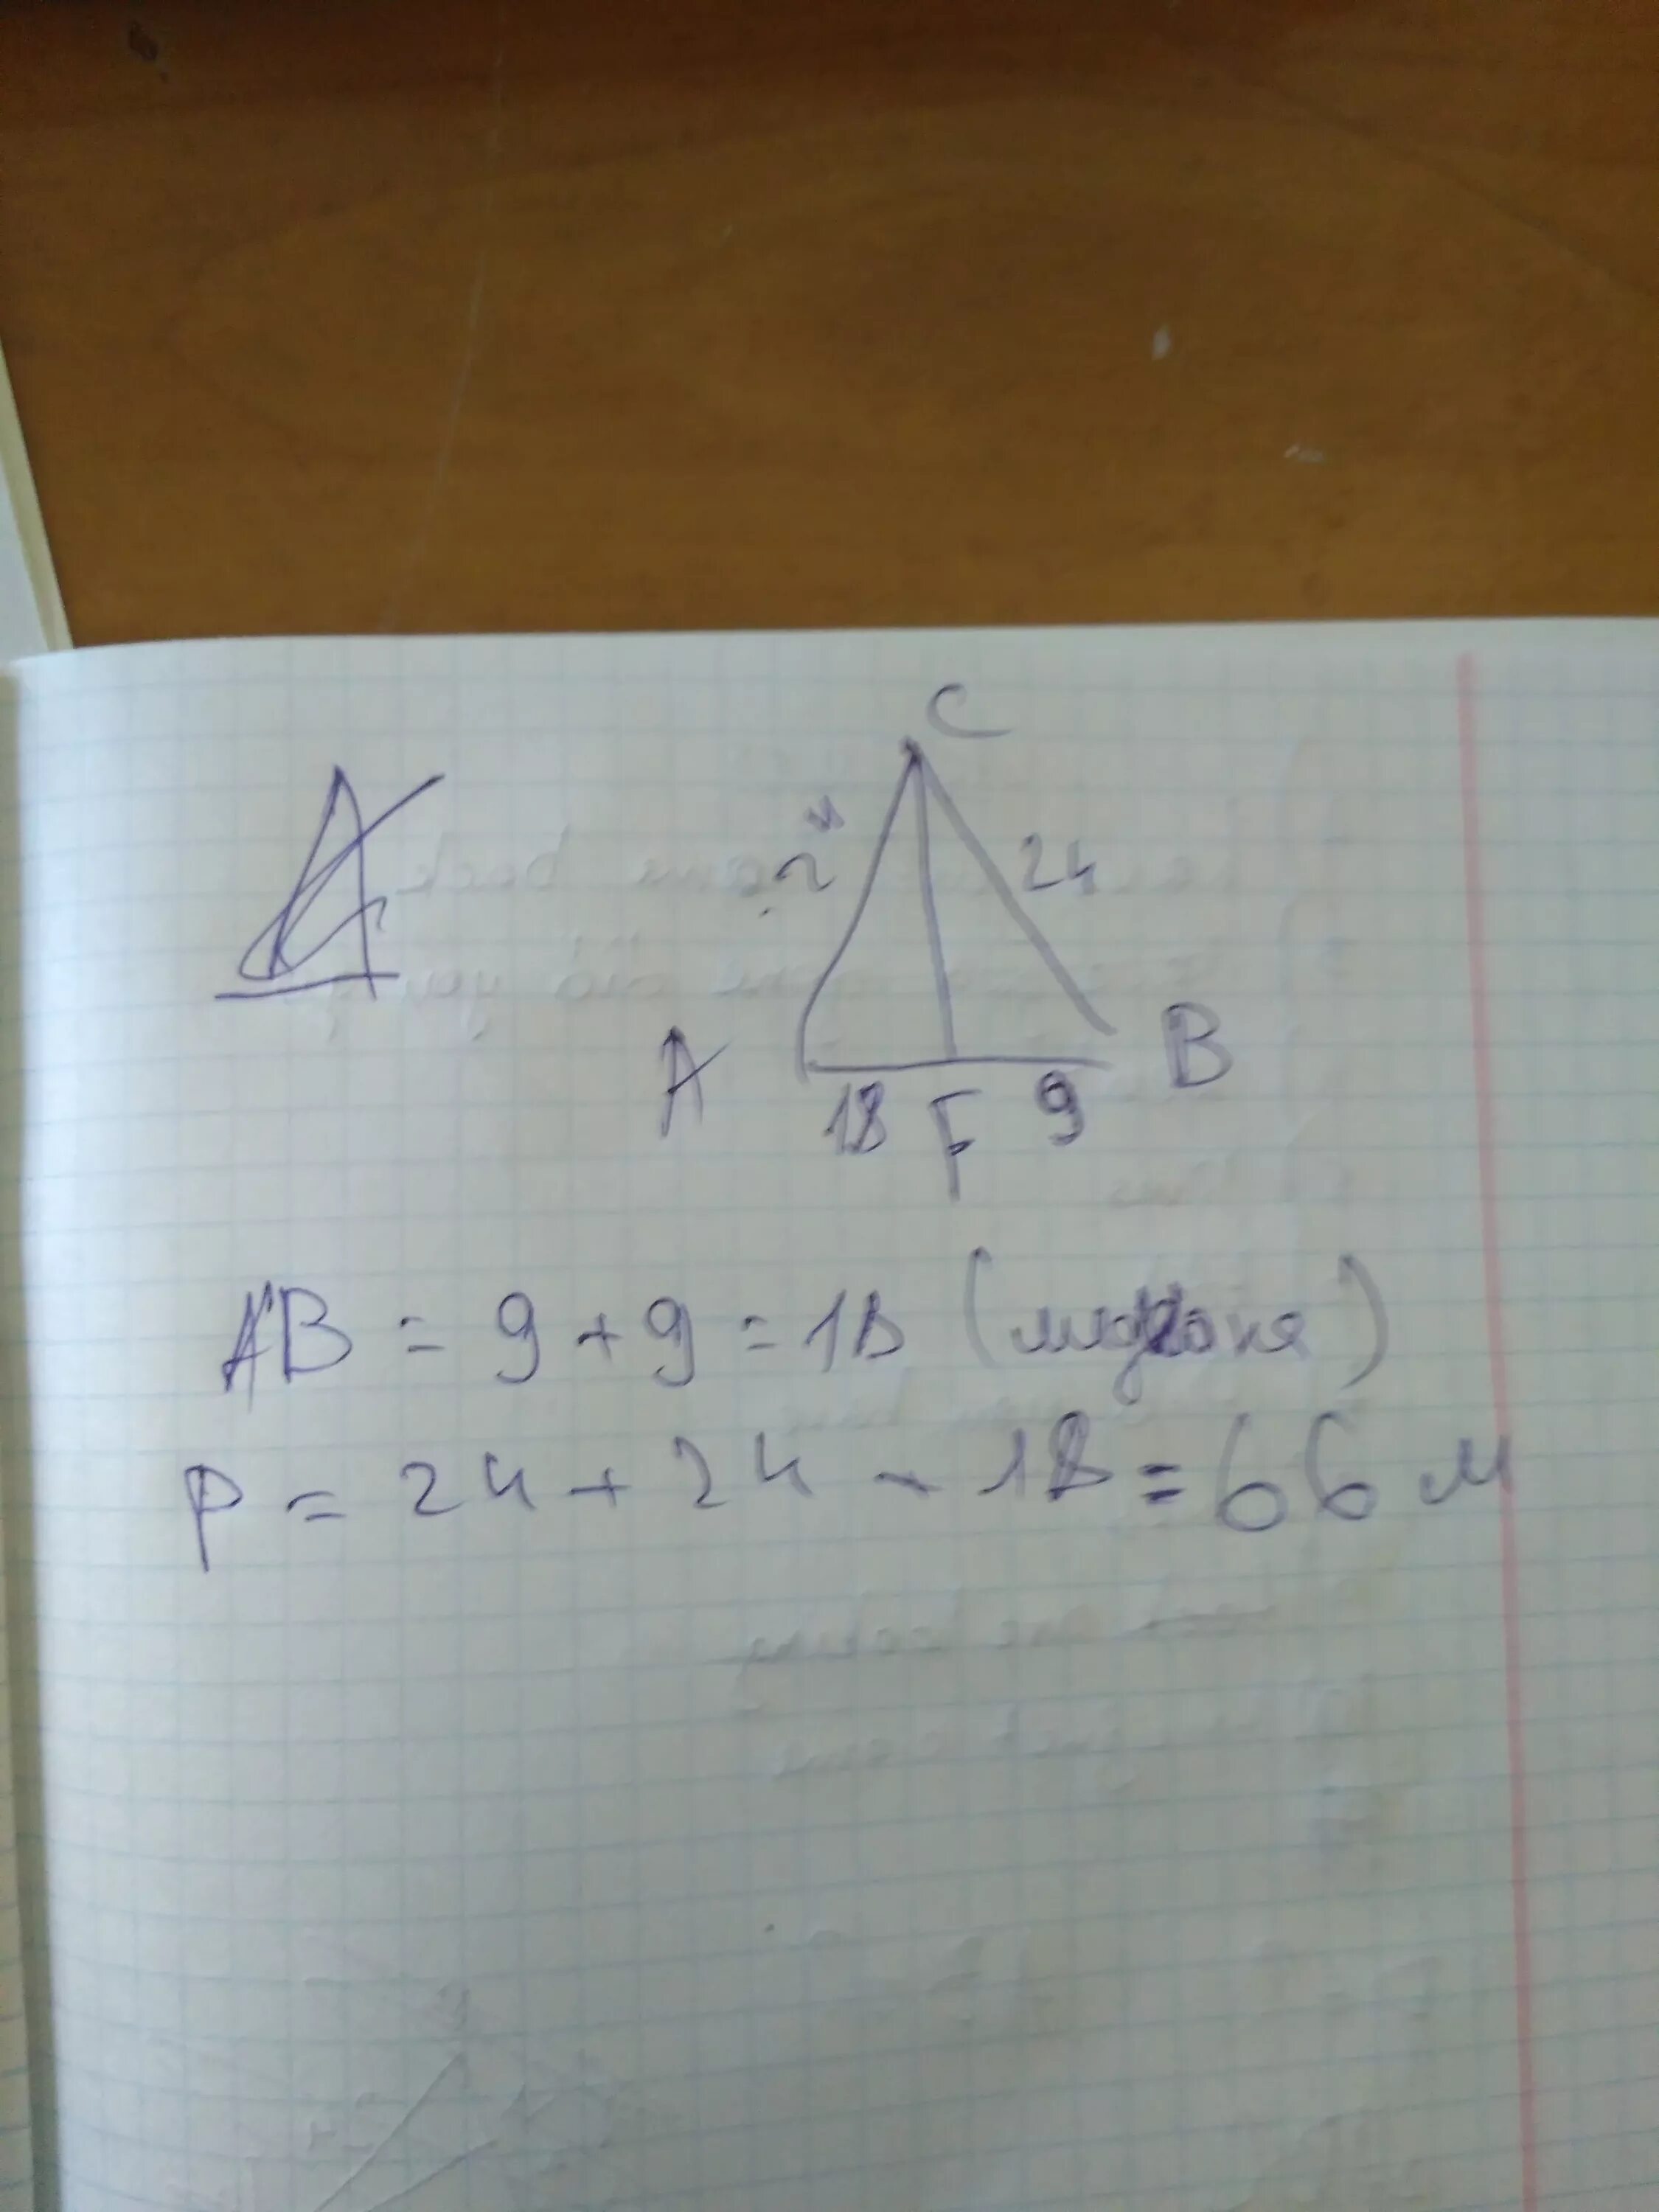 C
24
24
A
B
18 F 9
AB = 9 + 9 = 18 (медиана)
P = 24 + 24 + 18 = 66 м